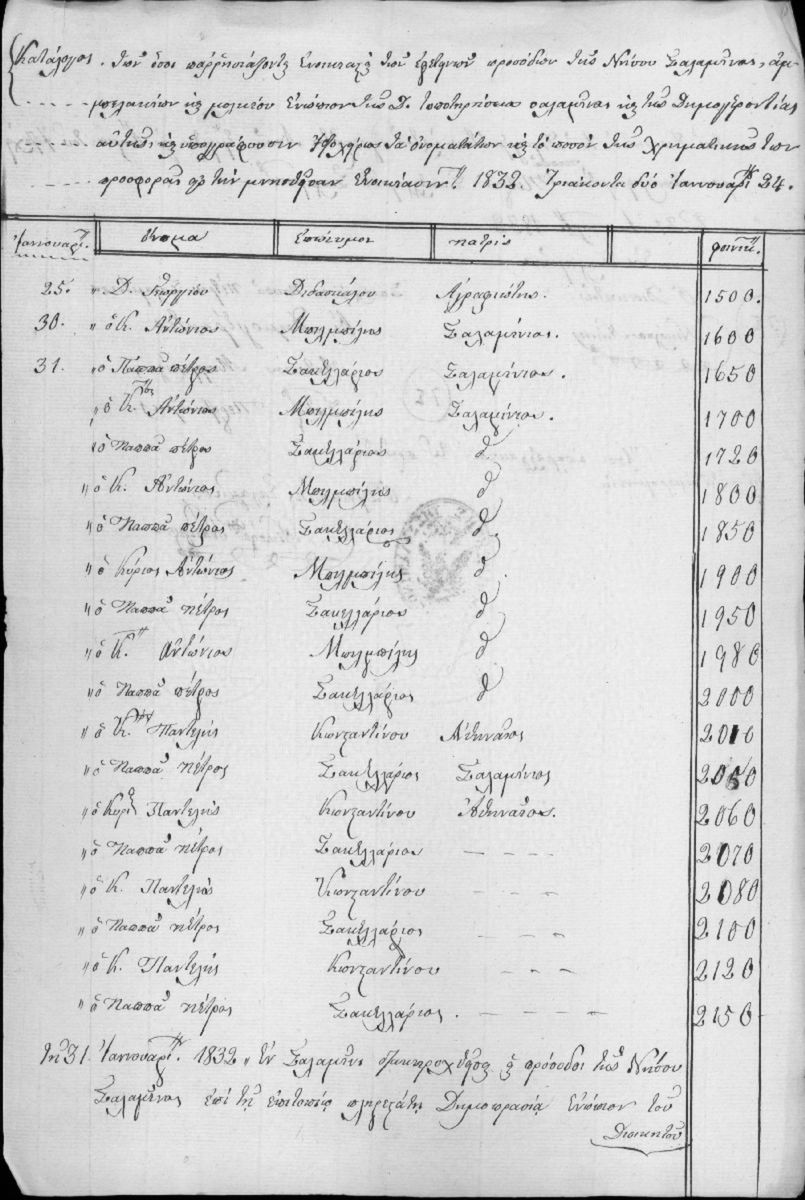 Κατάλογος. τῶν ὅσοι παῤῥησιάζοντε τῶν ἐφετινῶν προσόδων τῆς Νήσου Σαλαμῖνος, ἀμ-
μπελακίων καὶ μολκίου ἐνώπιον τῆς Δ. τοποτηρήσεως σαλαμῖνος καὶ τῆς Δημογεροντίας
αὐτῆς, καὶ ὑπογράφουσιν ἰδιοχείρως τὰ ὀνόματάτων καὶ τὸ ποσὸν τῆς χρηματικῆς των
προσφορᾶς τὴν ἐνοικίασιν. 1832. τριάκοντα δύο Ἰαννουαρίου 24.
Ἰαννουαρίου. ὄνομα ἐπώνυμον πατρὶς φοίνικ.
25. " Δ. Γεωργίου Διδασκάλου Ἀγραφιώτης. 1500.
30. " ὁ Κ. Ἀντώνιος Μπιλμπίλης Σαλαμίνιος. 1600
31. " ὁ Παππᾶ πέτρος Σακελλάριος Σαλαμίνιος. 1650
" ὁ Κ. Ἀντώνιος Μπιλμπίλης Σαλαμίνιος. 1700
" ὁ Παππᾶ πέτρος Σακελλάριος δ 1720
" ὁ Κ. Ἀντώνιος Μπιλμπίλης δ 1800
" ὁ Παππᾶ πέτρος Σακελλάριος δ 1850
" ὁ Κύριος Ἀντώνιος Μπιλμπίλης δ 1900
" ὁ Παππᾶ πέτρος Σακελλάριος δ 1950
" ὁ Κ. Ἀντώνιος Μπιλμπίλης δ 1980
" ὁ Παππᾶ πέτρος Σακελλάριος δ 2000
" ὁ Κ. Παντελῆς Κωνσταντίνου Ἀθηναῖος 2010
" ὁ Παππᾶ πέτρος Σακελλάριος Σαλαμίνιος 2050
" ὁ Κύρ. Παντελῆς Κωνσταντίνου Ἀθηναῖος. 2060
" ὁ Παππᾶ πέτρος Σακελλάριος – – – 2070
" ὁ Κ. Παντελῆς Κωνσταντίνου – – – 2080
" ὁ Παππᾶ πέτρος Σακελλάριος – – – 2100
" ὁ Κ. Παντελῆς Κωνσταντίνου – – – 2120
" ὁ Παππᾶ πέτρος Σακελλάριος. – – – 2150
τῇ 31. Ἰαννουαρίου. 1832 " Ἐν Σαλαμῖνι ᾑ πρόσοδοι τῆς Νήσου
Σαλαμῖνος ἐπὶ τῆς Δημοπρασίᾳ ἐνώπιον τοῦ
Διοικητοῦ